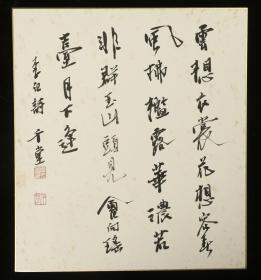 雲想衣裳花想容春
風拂檻露華濃若
非群玉山頭見會向瑤
臺月下逢
李白詩 千堂